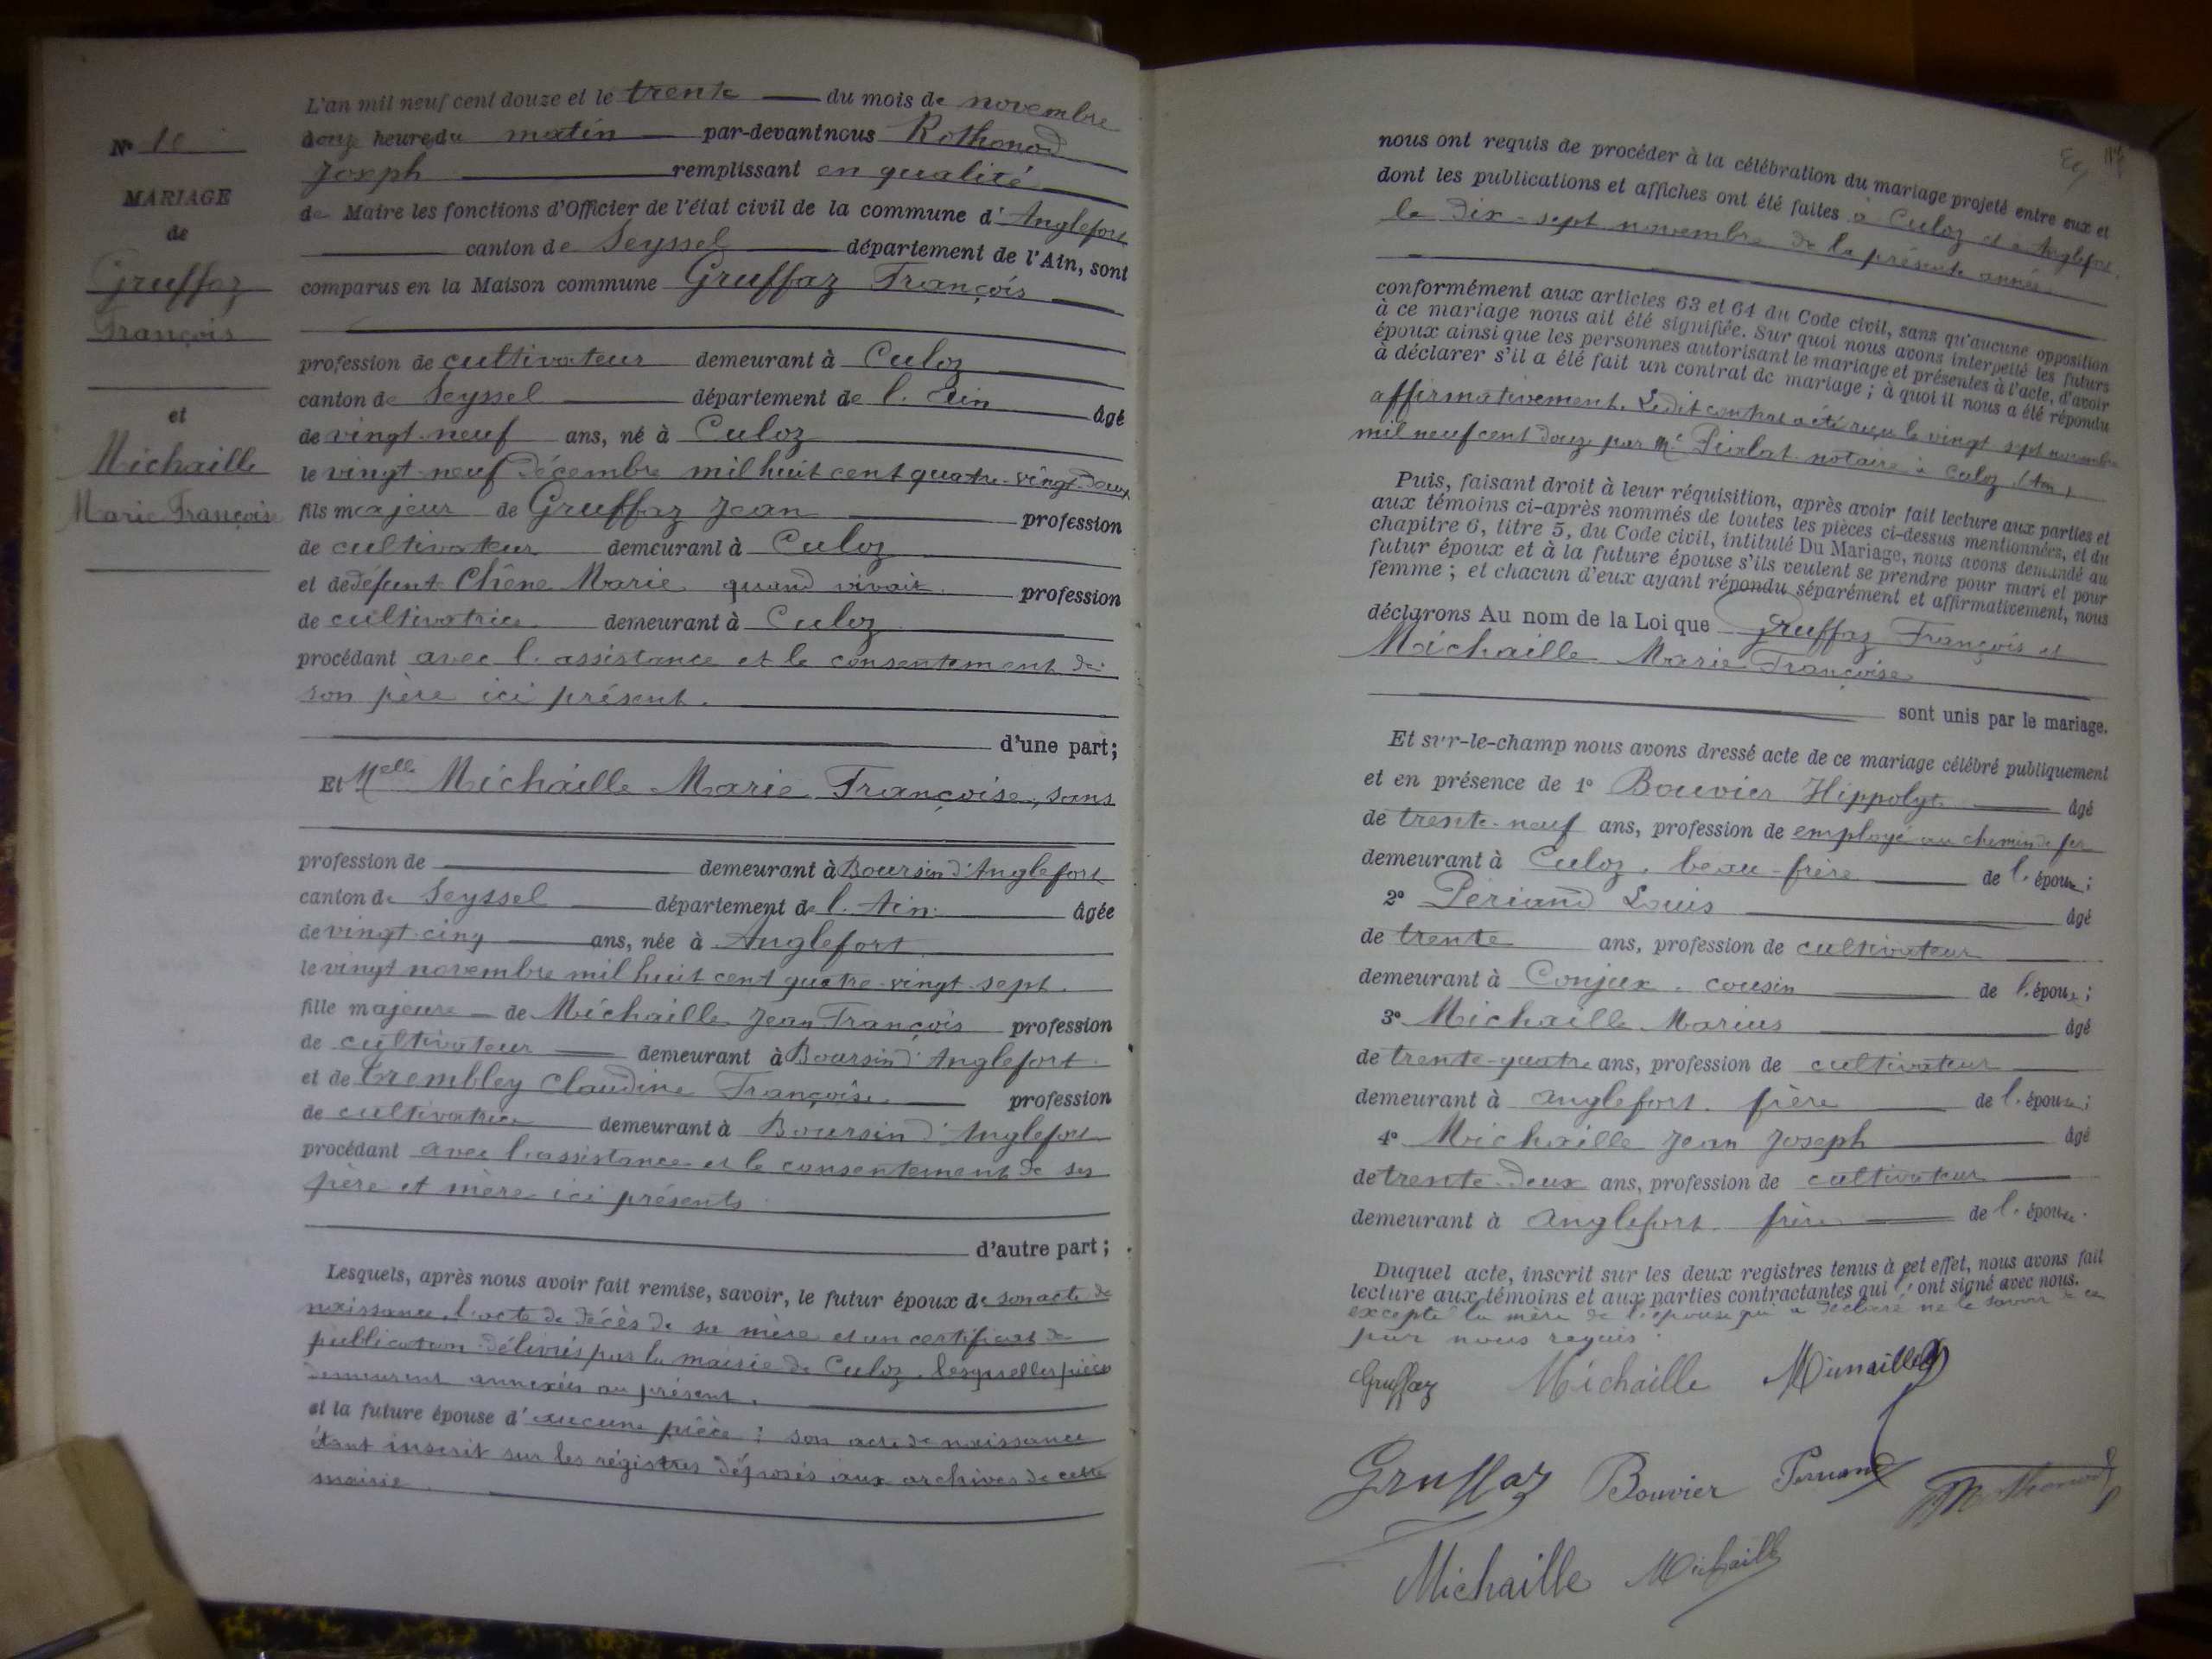 N° 10
MARIAGE
de
Gruffaz
François
et
Michaille
Marie Françoise
L'an mil neuf cent douze et le trente du mois de novembre
heures du matin par-devant nous Rothonod
Joseph remplissant en qualité
de Maire les fonctions d'Officier de l'état civil de la commune d'Anglefort
canton de Seyssel département de l'Ain, sont
comparus en la Maison commune Gruffaz François
profession de cultivateur demeurant à Culoz
canton de Seyssel département de l'Ain âgé
de vingt-neuf ans, né à Culoz
le vingt-neuf Décembre mil huit cent quatre-vingt-deux
fils majeur de Gruffaz Jean profession
de cultivateur demeurant à Culoz
et de défunt Chêne Marie quand vivait profession
de cultivatrice demeurant à Culoz
procédant avec l'assistance et le consentement de
son père ici présent.
d'une part;
Et Melle Michaille Marie Françoise, sans
profession de demeurant à Boursin d'Anglefort
canton de Seyssel département de l'Ain âgée
de vingt-cinq ans, née à Anglefort
le vingt novembre mil huit cent quatre-vingt-sept.
fille majeure de Michaille Jean François profession
de cultivateur demeurant à Boursin d'Anglefort
et de Trembley Claudine Françoise profession
de cultivatrice demeurant à Boursin d'Anglefort
procédant avec l'assistance et le consentement de ses
père et mère ici présents
d'autre part;
Lesquels, après nous avoir fait remise, savoir, le futur époux de son acte de
naissance, l'acte de décès de sa mère et un certificat de
publication délivrés par la mairie de Culoz. lesquelles pièces
demeurent annexées au présent.
et la future épouse d'aucune pièce; son acte de naissance
étant inscrit sur les régistres déposés aux archives de cette
mairie.
nous ont requis de procéder à la célébration du mariage projeté entre eux et
dont les publications et affiches ont été faites à Culoz et à Anglefort
le dix-sept novembre de la présente année.
conformément aux articles 63 et 64 du Code civil, sans qu'aucune opposition
à ce mariage nous ait été signifiée. Sur quoi nous avons interpellé les futurs
époux ainsi que les personnes autorisant le mariage et présentes à l'acte, d'avoir
à déclarer s'il a été fait un contrat de mariage; à quoi il nous a été répondu
affirmativement. Ledit contrat a été reçu le vingt sept novembre
mil neuf cent douze par Me notaire à Culoz (Ain)
Puis, faisant droit à leur réquisition, après avoir fait lecture aux parties et
aux témoins ci-après nommés de toutes les pièces ci-dessus mentionnées, et du
chapitre 6, titre 5, du Code civil, intitulé Du Mariage, nous avons demandé au
futur époux et à la future épouse s'ils veulent se prendre pour mari et pour
femme; et chacun d'eux ayant répondu séparément et affirmativement, nous
déclarons Au nom de la Loi que Gruffaz François et
Michaille Marie Françoise
sont unis par le mariage.
Et sur-le-champ nous avons dressé acte de ce mariage célébré publiquement
et en présence de 1° Bouvier Hippolyte âgé
de trente-neuf ans, profession de employé au chemin de fer
demeurant à Culoz. beau-frère de l'époux;
2° Periand Louis âgé
de trente ans, profession de cultivateur
demeurant à Conjux. cousin de l'époux;
3° Michaille Marius âgé
de trente-quatre ans, profession de cultivateur
demeurant à Anglefort. frère de l'épouse;
4° Michaille Jean Joseph âgé
de trente-deux ans, profession de cultivateur
demeurant à Anglefort. frère de l'épouse.
Duquel acte, inscrit sur les deux registres tenus à cet effet, nous avons fait
lecture aux témoins et aux parties contractantes qui l'ont signé avec nous.
excepté la mère de l'épouse qui a déclaré ne le savoir de ce
par nous requis.
Gruffaz Michaille Michaille
Gruffaz Bouvier Periand Rothonod
Michaille Michaille